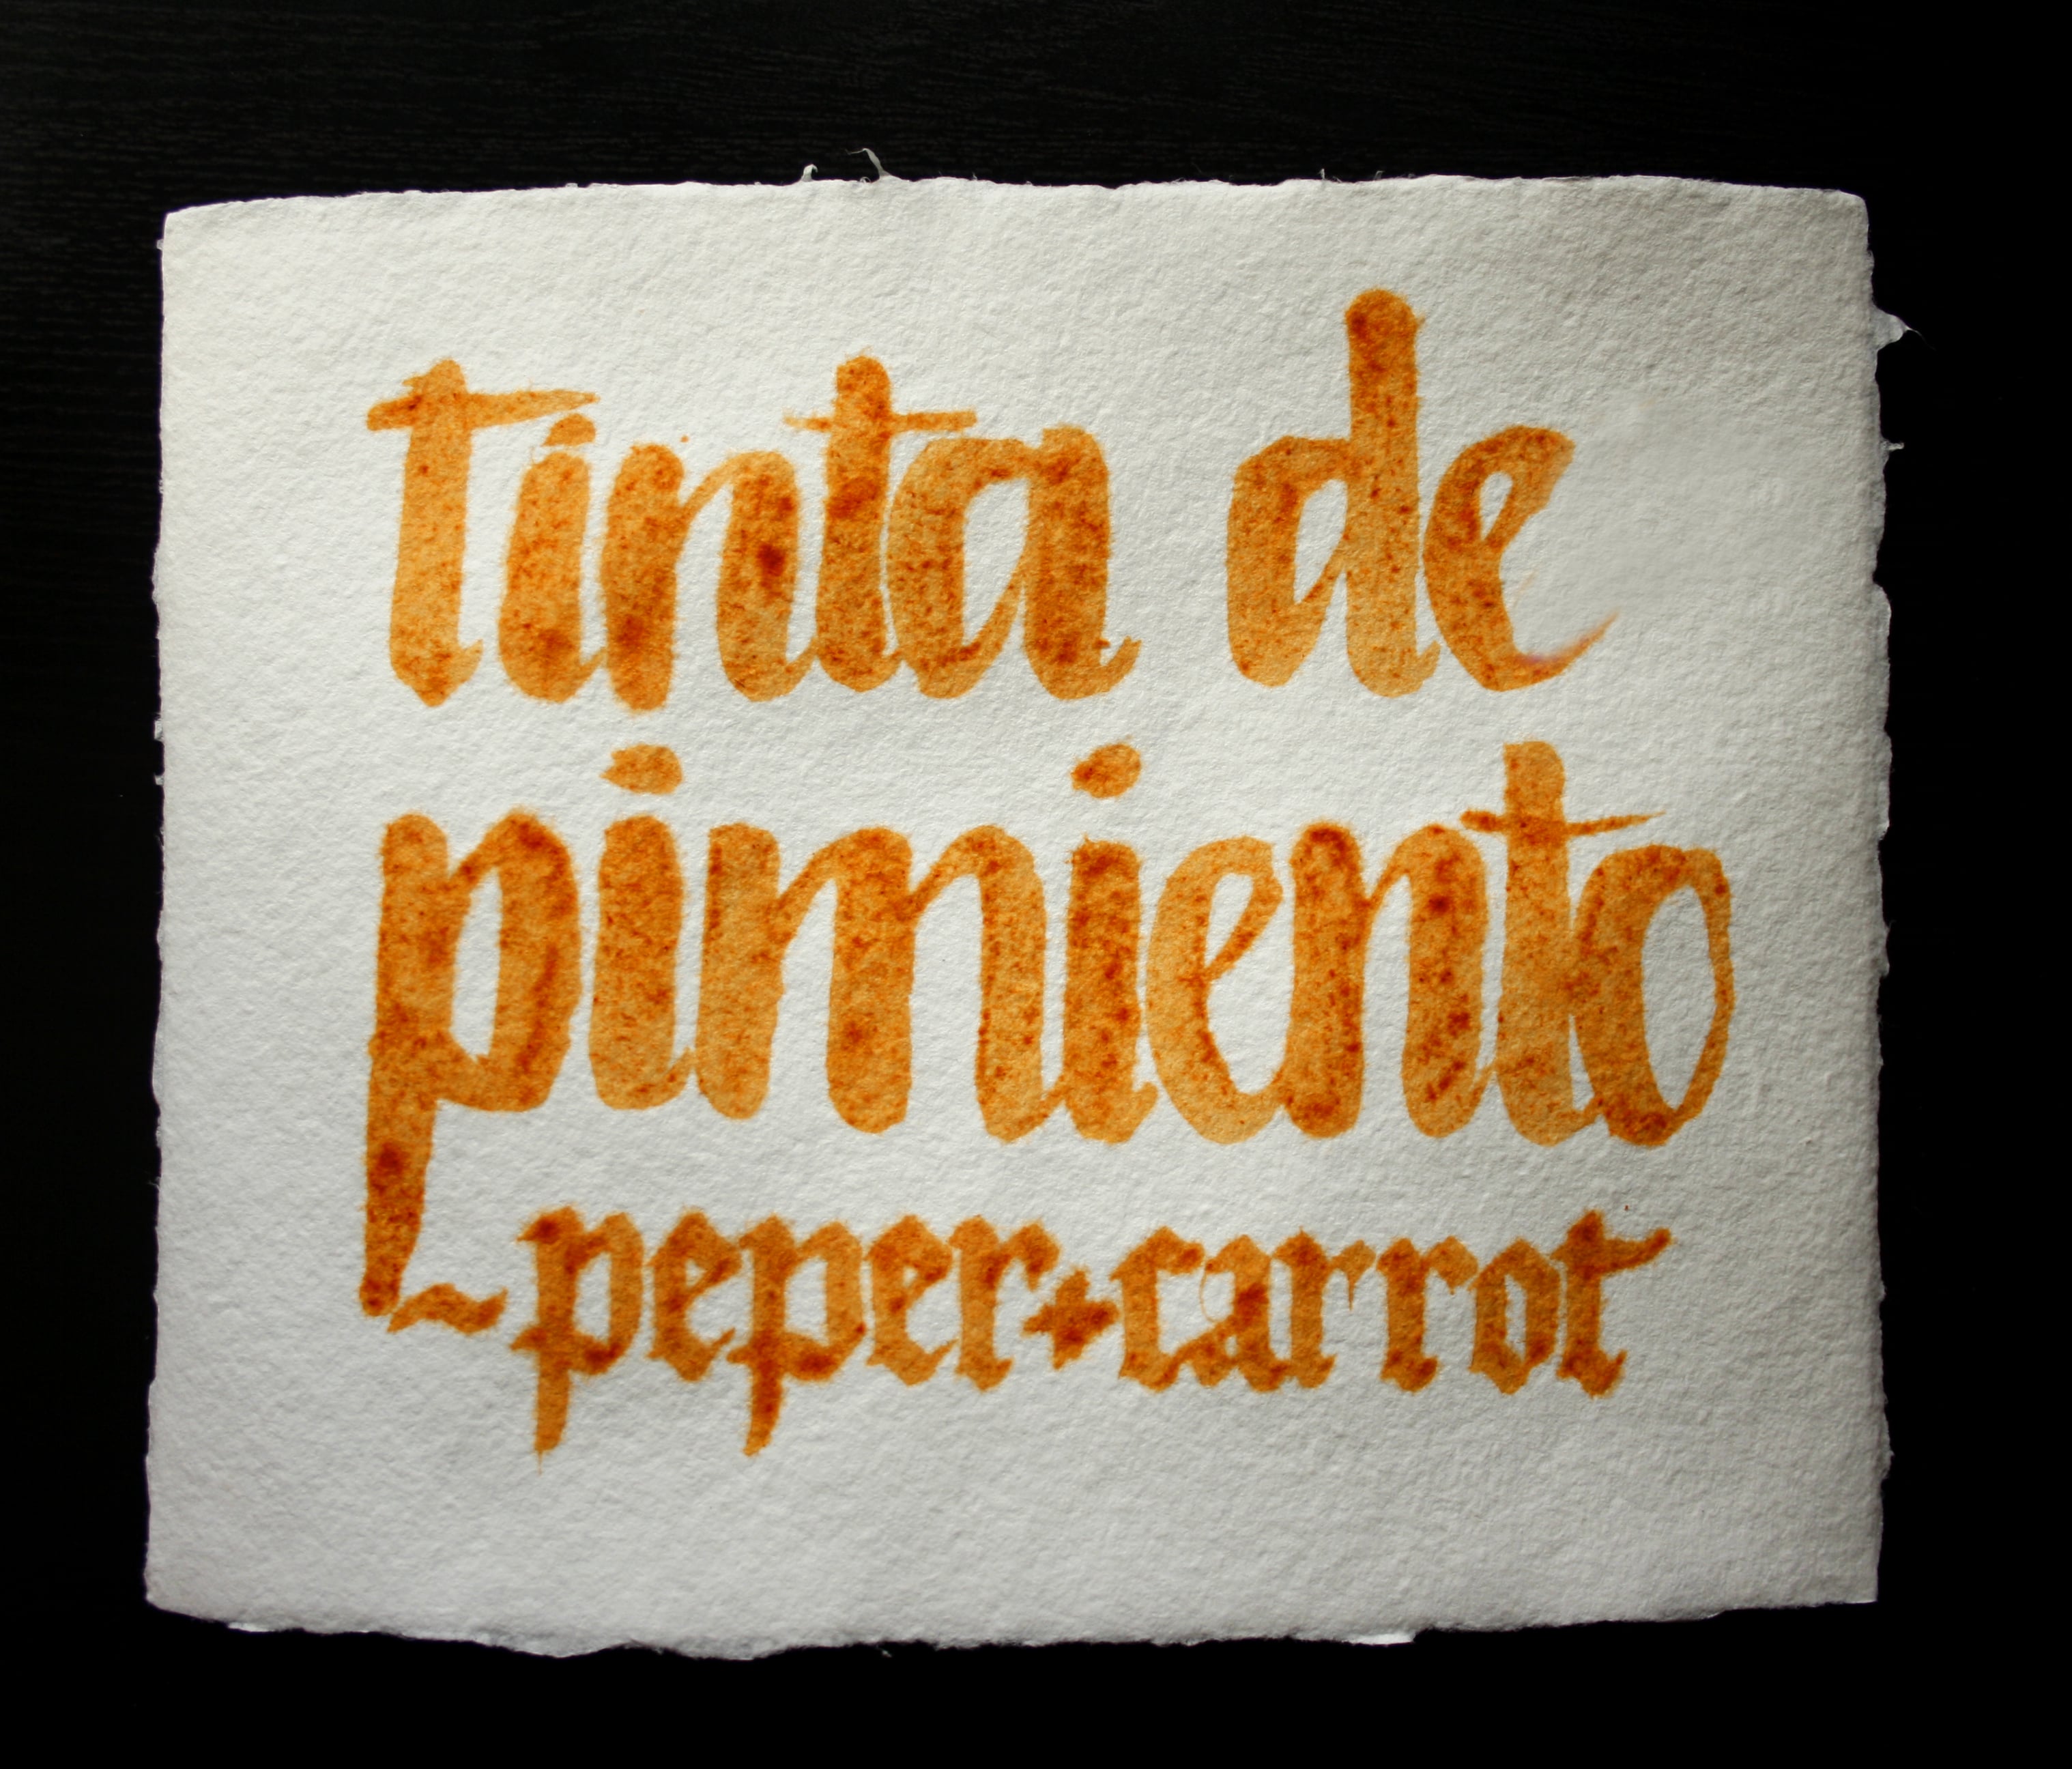 tinta de
pimiento
~peper+carrot